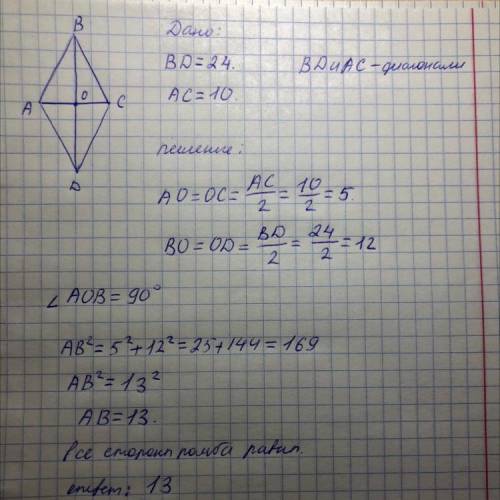 B
Дано:
BD = 24.
BD и AC - диагонали
A
O
C
AC = 10.
D
решение:
AO = OC = AC/2 = 10/2 = 5.
BO = OD = BD/2 = 24/2 = 12
∠ AOB = 90°
AB² = 5² + 12² = 25 + 144 = 169
AB² = 13²
AB = 13.
все стороны ромба равны.
ответ: 13